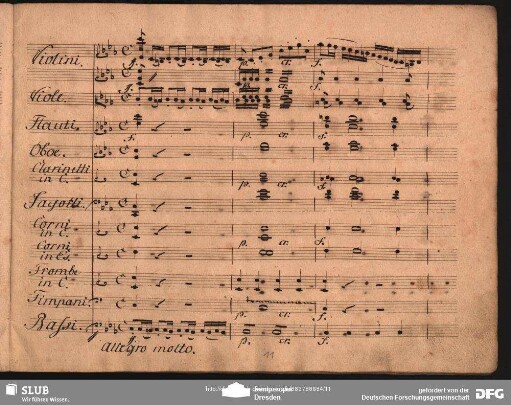 Violini.
f.
p.
cr.
f.
f.
Viole.
Flauti.
f.
p.
cr.
f.
Oboe.
Clarinetti
in C.
p.
cr.
f.
Fagotti.
Corni
in C.
p.
cr.
f.
Corni
Trombe
in C.
Timpani.
p.
cr.
f.
Bassi.
p.
cr.
f.
Allegro molto.
11
SLUB
Wir führen Wissen.
Dresden
gefördert von der
Deutschen Forschungsgemeinschaft
DFG